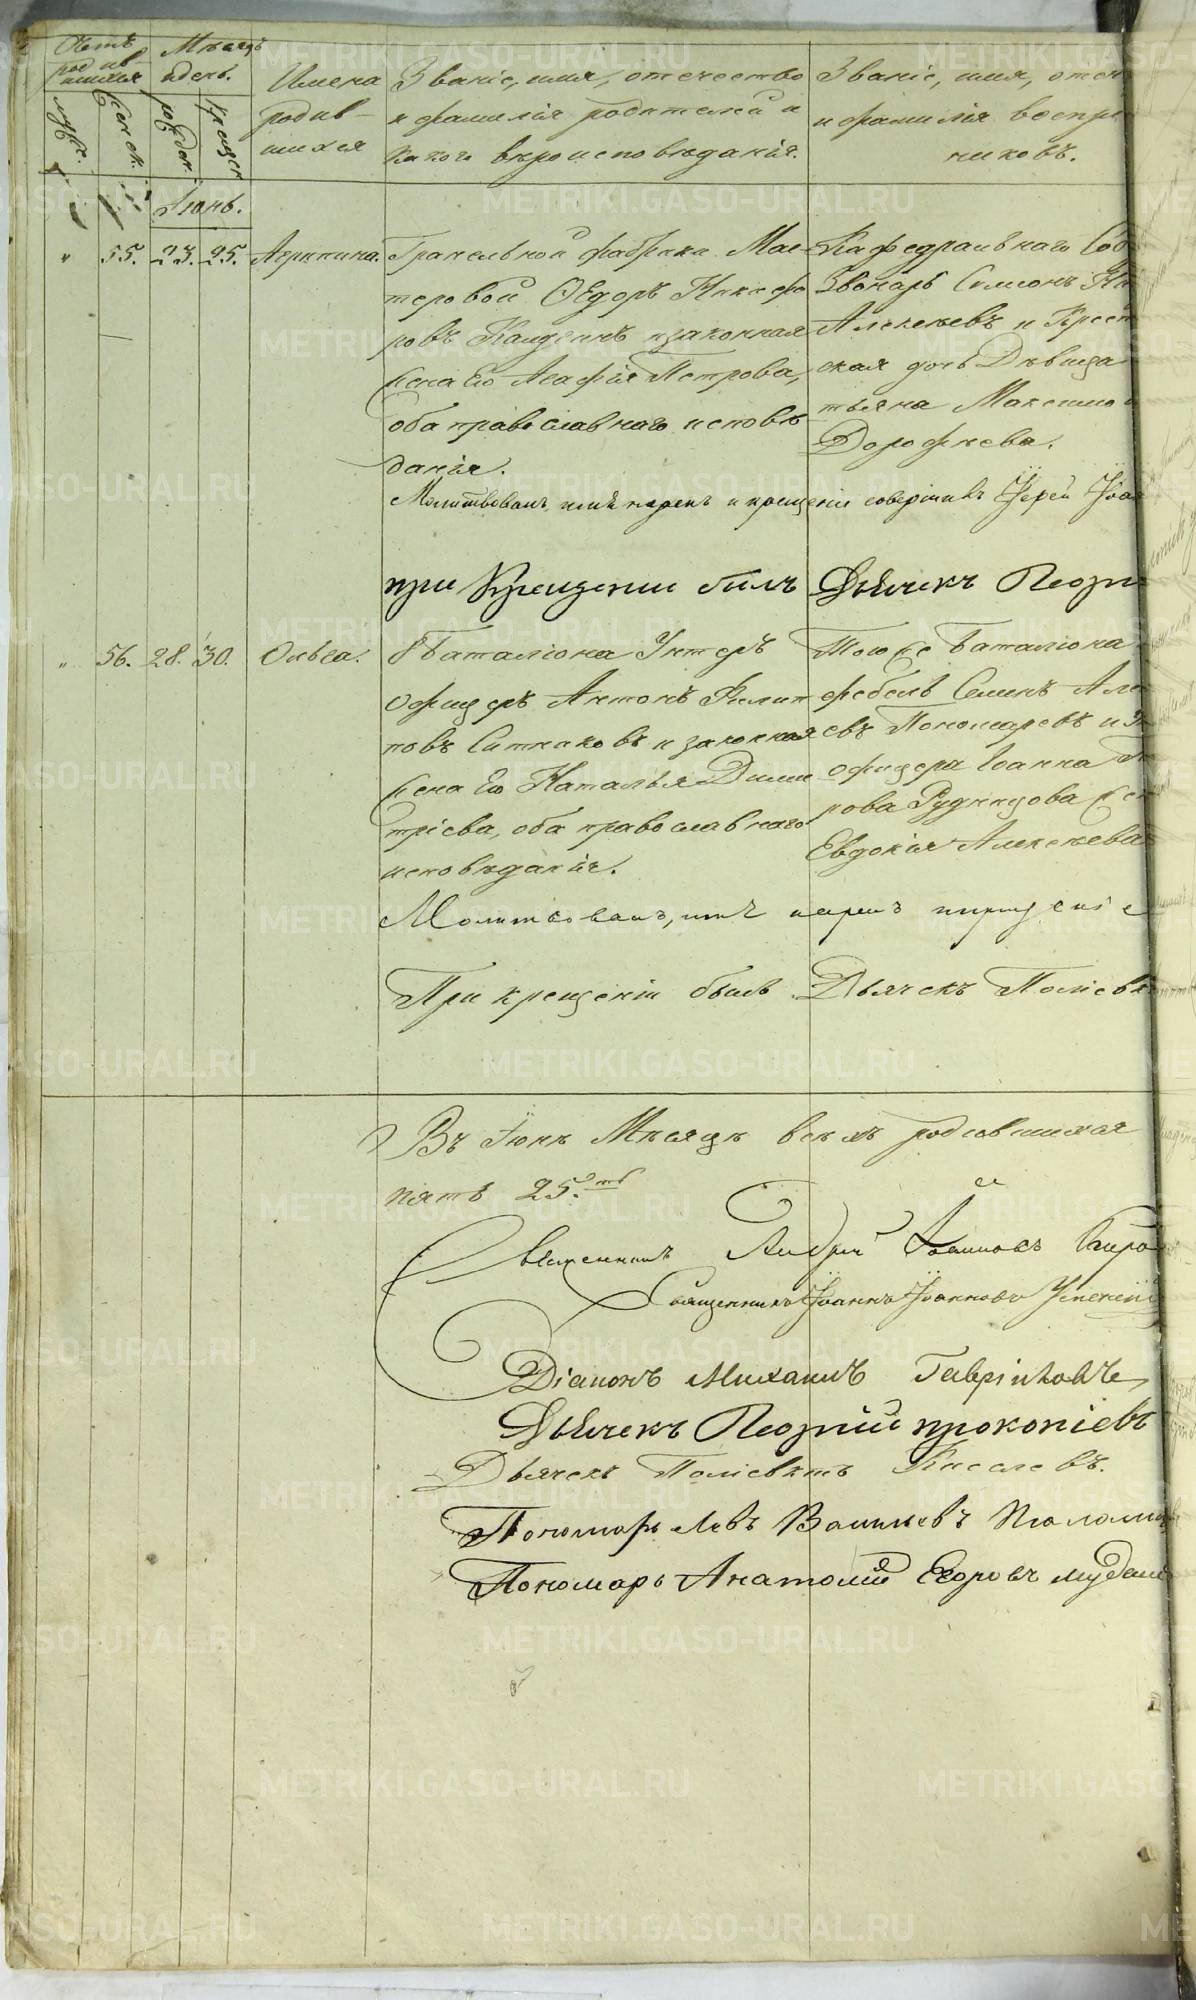 Счетъ родившихся
Мѣсяцъ и день.
Имена родившихся
Званіе, имя, отечество
и фамилія родителей и
какого вѣроисповѣданія.
Званіе, имя, отеч
и фамилія воспрі
никовъ.
муж.
женск.
рожден.
крещен
Іюнь.
" 55. 23. 25. Агрипина.
Гранельной фабрики Мас-
теровой Ѳедоръ Никифо
ровъ и законная
жена Его Агафія Петрова,
оба православнаго исповѣ
данія.
Кафедральнаго Соб
Звонарь Симіонъ
Алексѣевъ и Крест
ская дочь Дѣвица
тьяна Максимо
Дорофѣева.
Молитвовалъ, имя нарекъ и крещеніе совершилъ Іерей Іоа
при Крещеніи былъ Дьячекъ Георги
" 56. 28. 30. Ольга.
Баталіона Унтеръ
Офицеръ Антонъ Филип
повъ Ситниковъ и законная
жена Его Наталья Дими
тріева, оба православнаго
исповѣданія.
Тогоже Баталіона
фебель Семенъ Але
евъ Пономаревъ и
офицера Іоанна
рова Рудницова же
Евдокія Алексѣева
Молитвовалъ, имя нарекъ и крещеніе с
При крещеніи былъ Дьячекъ Поліевк
Въ Іюнѣ Мѣсяцѣ всѣхъ родившихся
пять 25.ть
Священникъ Андрей Іоанновъ
Священникъ Іоаннъ Іоанновъ Успенскій
Діаконъ Михаилъ Гавриловъ
Дьячекъ Георгій Прокопіевъ
Дьячекъ Поліевктъ Киселевъ.
Пономарь Левъ Васильевъ
Пономарь Анатолій Егоровъ
METRIKI.GASO-URAL.RU